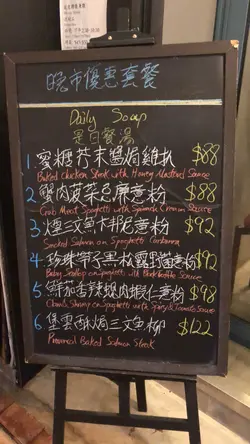 晚市優惠套餐
Daily Soap
是日餐湯
1 蜜糖芥末醬焗雞扒 $88
Baked Chicken Steak with Honey Mustard Sauce
2 蟹肉菠菜忌廉意粉 $88
Crab Meat Spaghetti with Spinach Cream Sauce
3 煙三文魚卡邦尼意粉 $92
Smoked Salmon on Spaghetti Carbonara
4 珍珠帶子黑松露野菌意粉 $92
Baby Scallop on Spaghetti with Black Truffle Sauce
5 鮮茄香辣蜆肉蝦仁意粉 $98
Clams & Shrimp on Spaghetti with Spicy & Tomato Sauce
6 堡雲酥焗三文魚柳 $122
Provencal Baked Salmon Steak